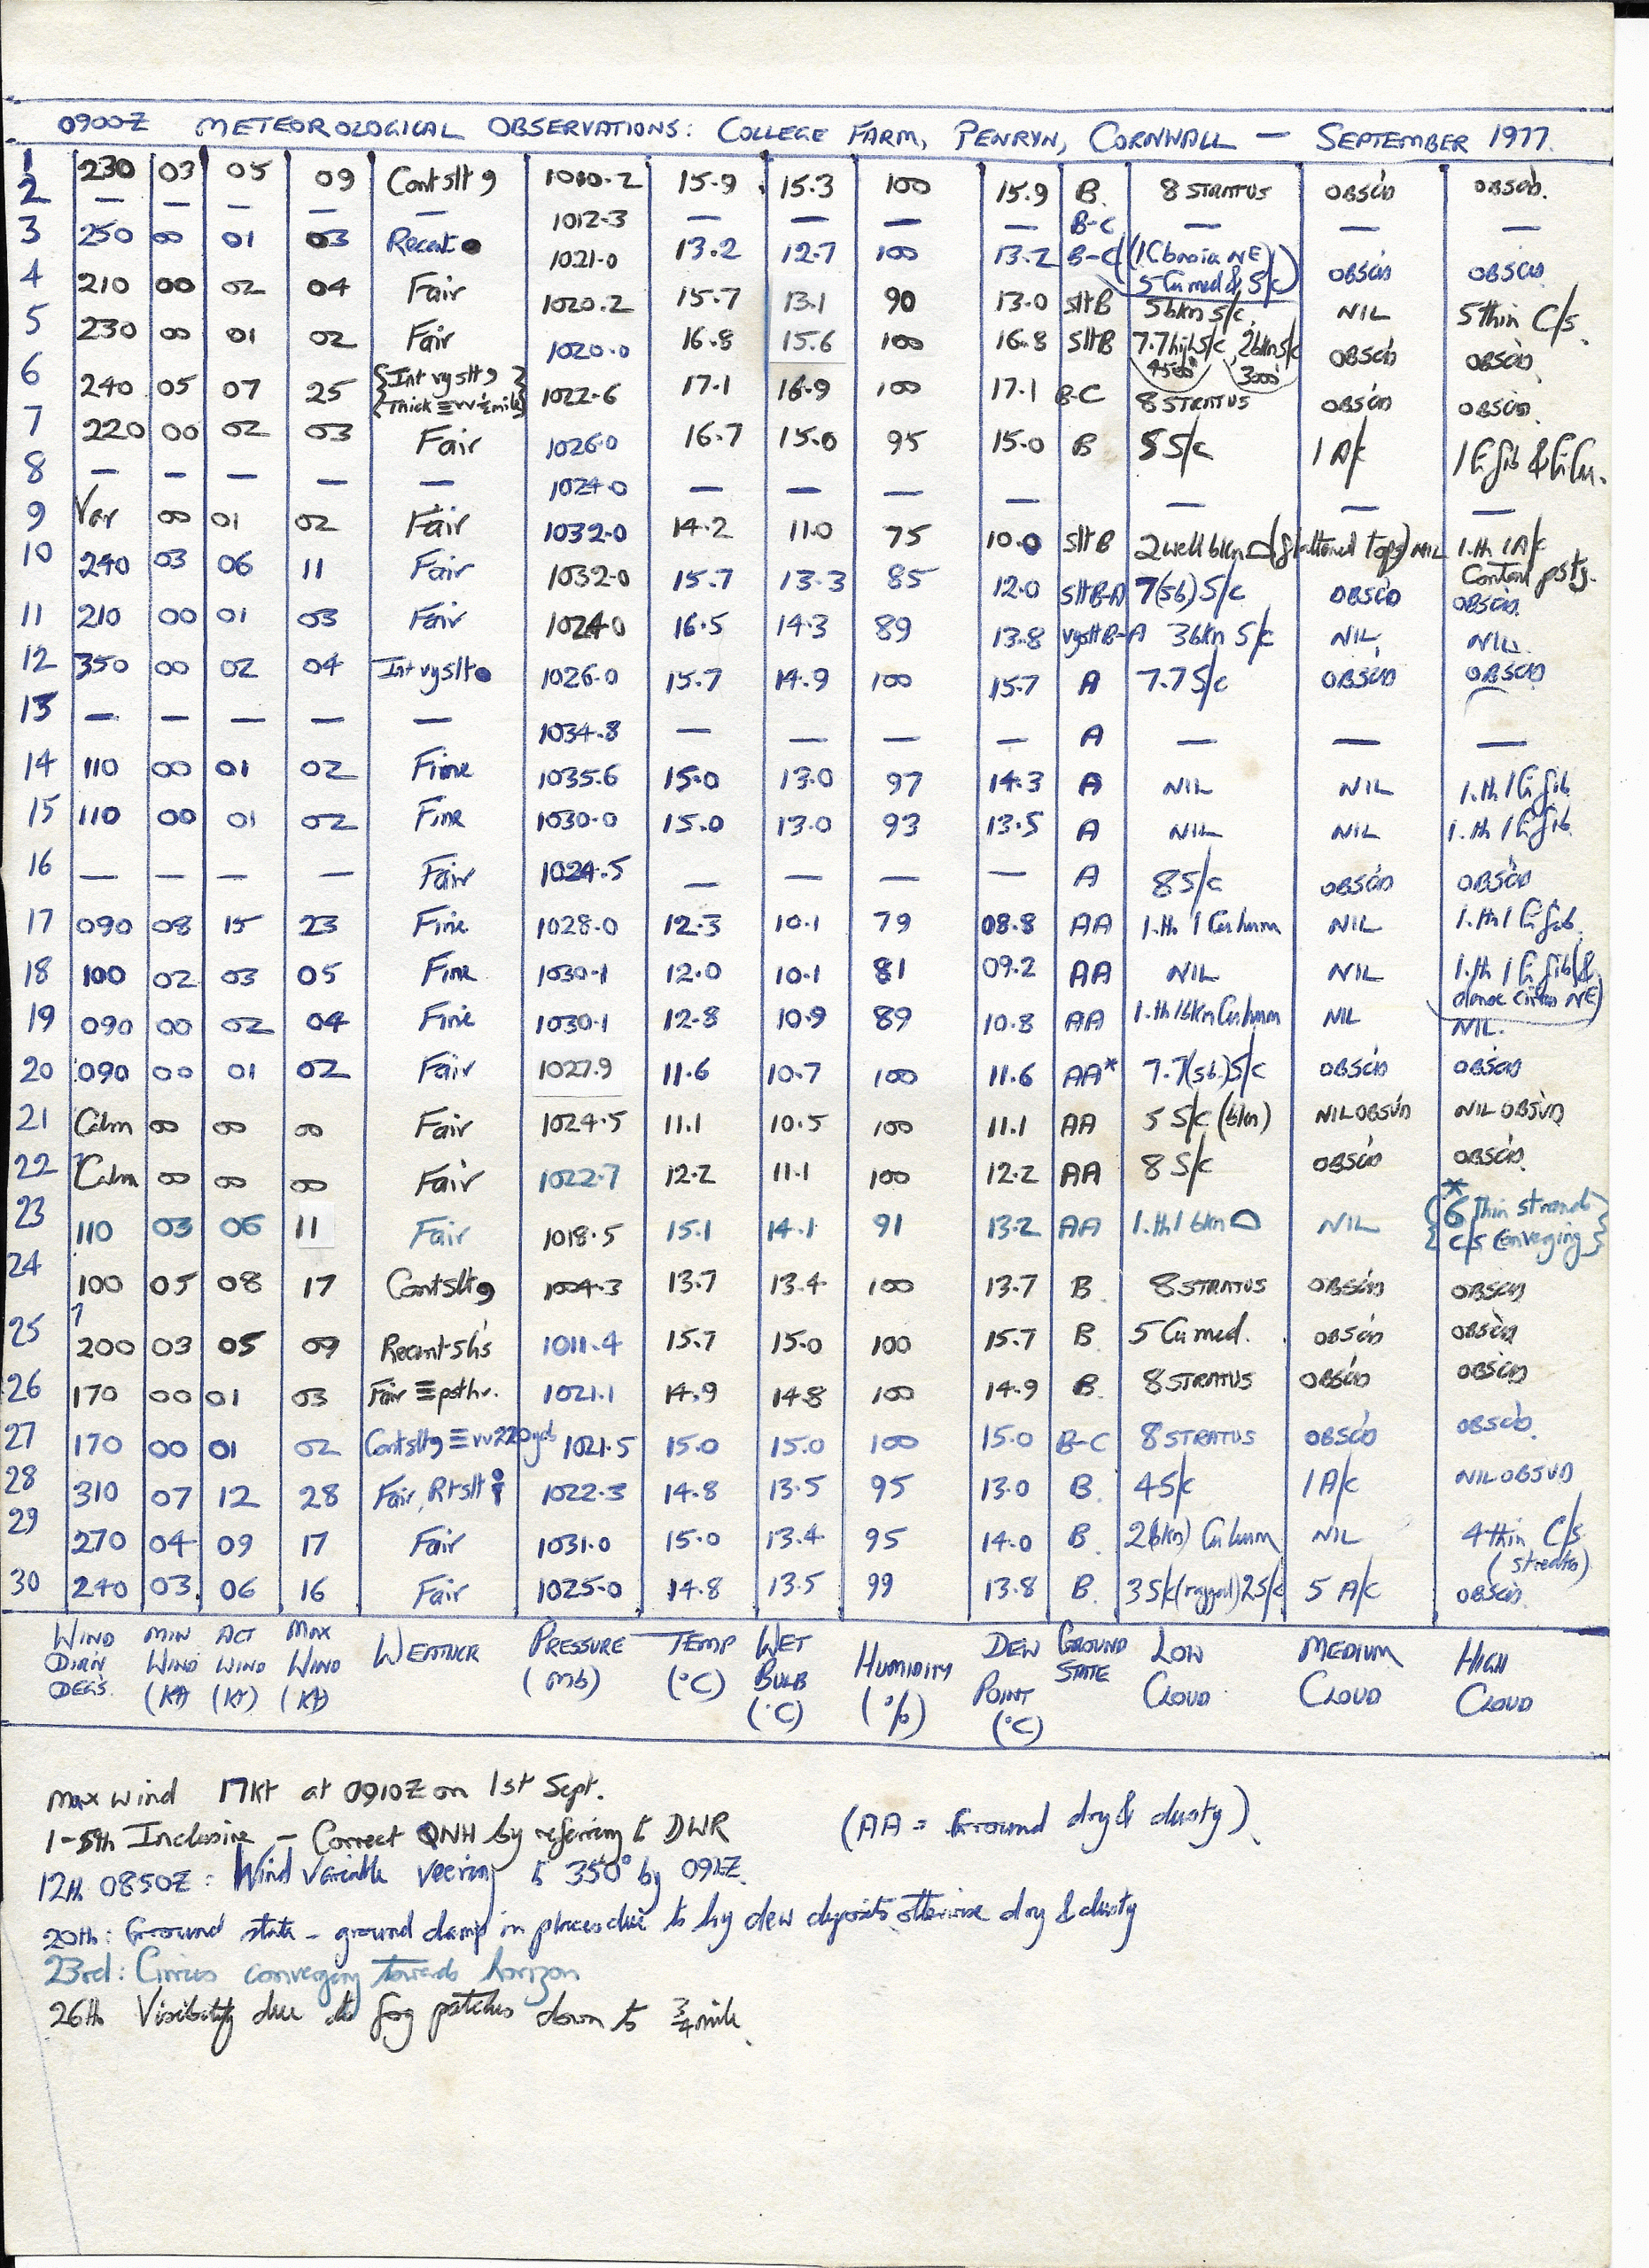 0900Z METEOROLOGICAL OBSERVATIONS: COLLEGE FARM, PENRYN, CORNWALL — SEPTEMBER 1977.
1 230 03 05 09 Cont slt 9 1010.2 15.9 15.3 100 15.9 B. 8 STRATUS OBSCD OBSCD.
2 — — — — — 1012.3 — — — — B-C — — —
3 250 00 01 03 Recent ● 1021.0 13.2 12.7 100 13.2 B-C (1Cb NE) 5 Cu med & S/c OBSCD OBSCD
4 210 00 02 04 Fair 1020.2 15.7 13.1 90 13.0 slt B 5 bkn S/c. NIL 5 thin C/s.
5 230 00 01 02 Fair 1020.0 16.8 15.6 100 16.8 Slt B 7.7 high S/c 4500' 2 bkn S/c 3000' OBSCD OBSCD
6 240 05 07 25 {Int vy slt 9} {Thick ≡ vv ½mile} 1022.6 17.1 16.9 100 17.1 B-C 8 STRATUS OBSCD OBSCD.
7 220 00 02 03 Fair 1026.0 16.7 15.0 95 15.0 B 8 S/c 1 A/c 1 Ci fib & Ci Cu.
8 — — — — — 1024.0 — — — — — — —
9 Var 00 01 02 Fair 1032.0 14.2 11.0 75 10.0 slt B 2 well bkn (flattened tops) NIL 1.th 1 A/c Contrail pstg.
10 240 03 06 11 Fair 1032.0 15.7 13.3 85 12.0 slt B-A 7(sb) S/c OBSCD OBSCD.
11 210 00 01 03 Fair 1024.0 16.5 14.3 89 13.8 vy slt B-A 3 bkn S/c NIL NIL.
12 350 00 02 04 Int vy slt ● 1026.0 15.7 14.9 100 15.7 A 7.7 S/c OBSCD OBSCD
13 — — — — — 1034.8 — — — — A — — —
14 110 00 01 02 Fine 1035.6 15.0 13.0 97 14.3 A NIL NIL 1.th 1 Ci fib
15 110 00 01 02 Fine 1030.0 15.0 13.0 93 13.5 A NIL NIL 1.th 1 Ci fib.
16 — — — — Fair 1024.5 — — — — A 8 S/c OBSCD OBSCD
17 090 08 15 23 Fine 1028.0 12.3 10.1 79 08.8 AA 1.th 1 Cu hum NIL 1.th 1 Ci fib.
18 100 02 03 05 Fine 1030.1 12.0 10.1 81 09.2 AA NIL NIL 1.th 1 Ci fib (& dense cirrus NE)
19 090 00 02 04 Fine 1030.1 12.8 10.9 89 10.8 AA 1.th 1 bkn Cu hum NIL NIL.
20 090 00 01 02 Fair 1027.9 11.6 10.7 100 11.6 AA* 7.7 (sb.) S/c OBSCD OBSCD
21 Calm 00 00 00 Fair 1024.5 11.1 10.5 100 11.1 AA 5 S/c (bkn) NIL OBSVD NIL OBSVD
22 Calm 00 00 00 Fair 1022.7 12.2 11.1 100 12.2 AA 8 S/c OBSCD OBSCD.
23 110 03 06 11 Fair 1018.5 15.1 14.1 91 13.2 AA 1.th 1 bkn NIL *{6 Thin strands C/s Converging}
24 100 05 08 17 Cont slt 9 1004.3 13.7 13.4 100 13.7 B. 8 STRATUS OBSCD OBSCD
25 200 03 05 09 Recent sh's 1011.4 15.7 15.0 100 15.7 B. 5 Cu med. OBSCD OBSCD
26 170 00 01 03 Fair ≡ ptchs. 1021.1 14.9 14.8 100 14.9 B. 8 STRATUS OBSCD OBSCD
27 170 00 01 02 Cont slt 9 ≡ vv 220 yds 1021.5 15.0 15.0 100 15.0 B-C 8 STRATUS OBSCD OBSCD.
28 310 07 12 28 Fair, Rt slt 1022.3 14.8 13.5 95 13.0 B. 4 S/c 1 A/c NIL OBSVD
29 270 04 09 17 Fair 1031.0 15.0 13.4 95 14.0 B. 2 (bkn) Cu hum NIL 4 thin C/s (streaks)
30 240 03 06 16 Fair 1025.0 14.8 13.5 99 13.8 B. 3 S/c (ragged) 2 S/c 5 A/c OBSCD.
WIND DIR'N DEG'S. MIN WIND (Kt) ACT WIND (Kt) MAX WIND (Kt) WEATHER PRESSURE (mb) TEMP (°C) WET BULB (°C) HUMIDITY (%) DEW POINT (°C) GROUND STATE LOW CLOUD MEDIUM CLOUD HIGH CLOUD
Max wind 17kt at 0910Z on 1st Sept.
1-5th Inclusive — Correct QNH by referring to DWR (AA = Ground dry & dusty).
12th 0850Z: Wind variable veering to 350° by 0912Z.
20th: Ground state - ground damp in places due to hvy dew deposits otherwise dry & dusty
23rd: Cirrus converging towards horizon
26th Visibility due to fog patches down to ¾ mile.